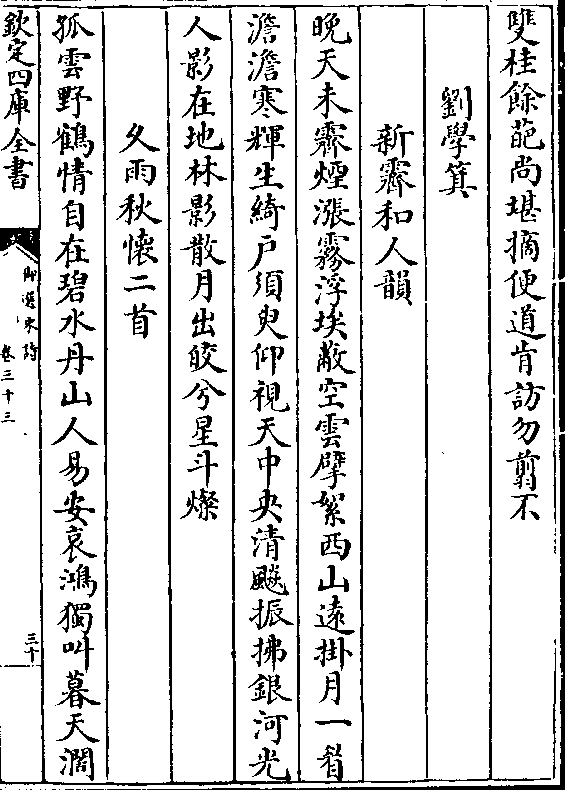 雙桂餘葩尚堪摘便道肯訪勿翦不
劉學箕
新霽和人韻
晚天未霽煙漲霧浮埃蔽空雲擘絮西山遠掛月一眉
澹澹寒輝生綺户須臾仰視天中央清飈振拂銀河光
人影在地林影散月出皎兮星斗燦
久雨秋懷二首
孤雲野鶴情自在碧水丹山人易安哀鴻獨叫暮天濶
欽定四庫全書
御選宋詩
卷三十三
三十